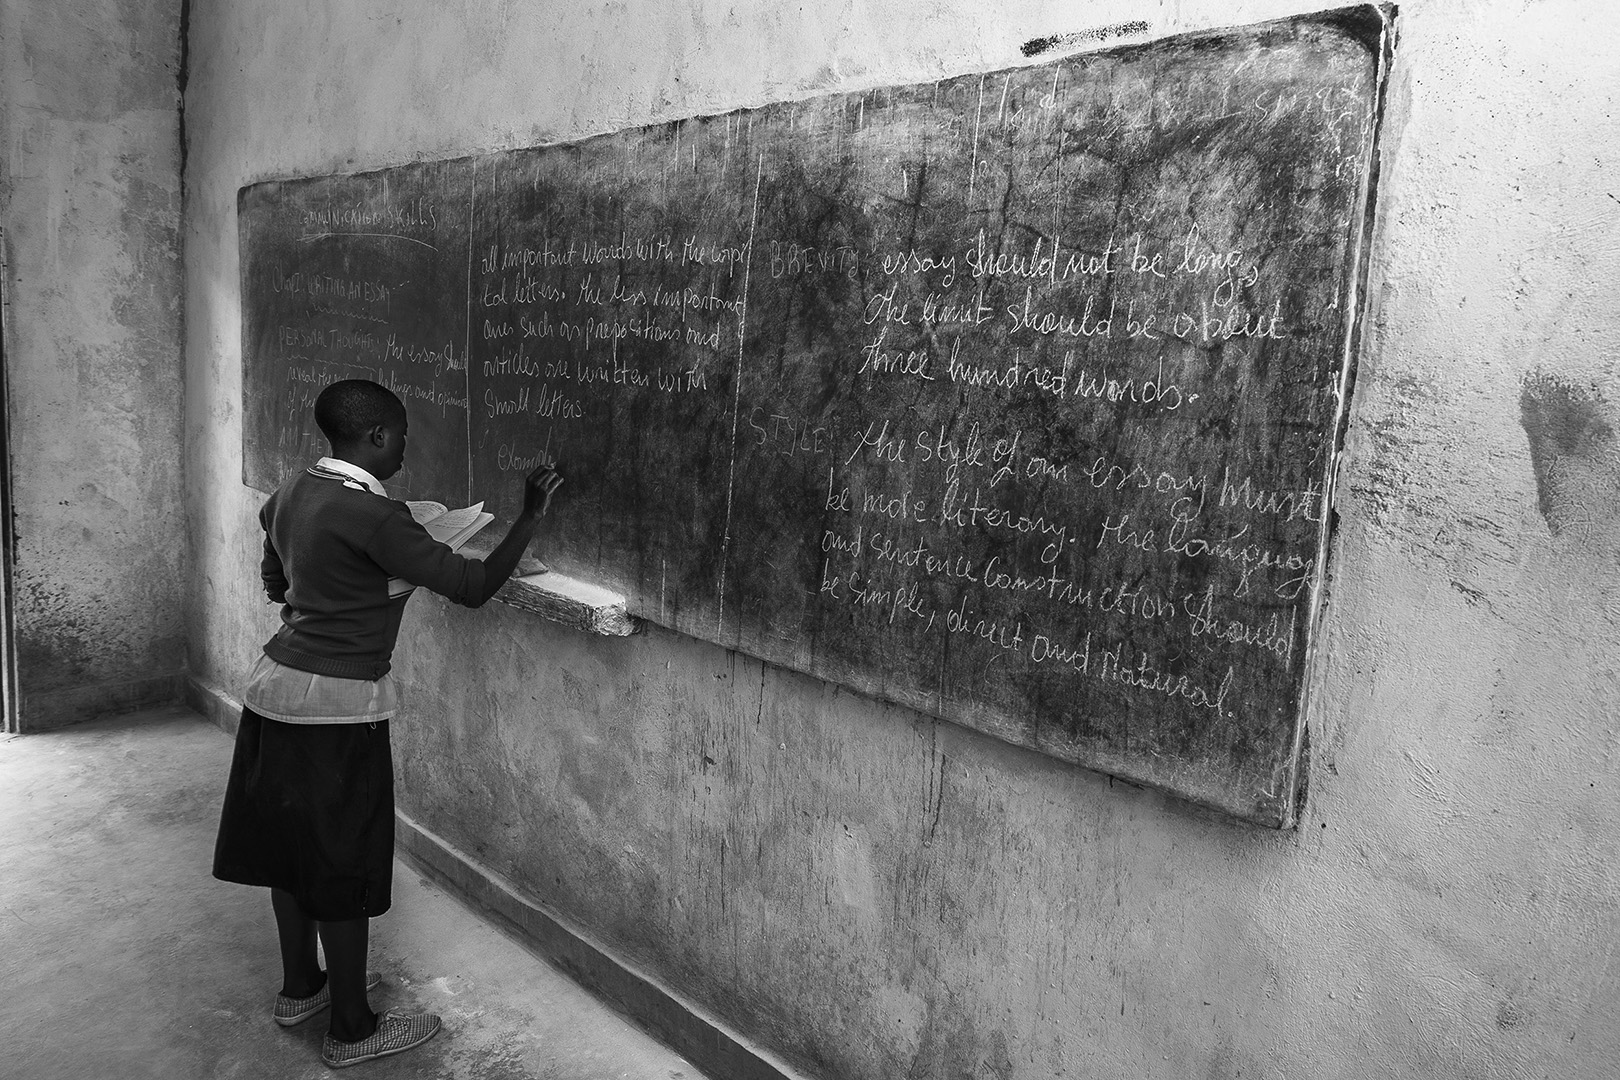 COMMUNICATION SKILLS
Chap I: WRITING AN ESSAY
PERSONAL THOUGHTS: the essay should
reveal the and opinions
of the
all important words with the capi
tal letters. the less important
ones such as prepositions and
articles are written with
Small letters.
Example
BREVITY: essay should not be long,
the limit should be about
three hundred words.
STYLE: the style of an essay must
be more literary. the language
and sentence construction should
be simple, direct and Natural.